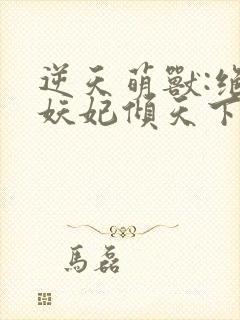 逆天萌獸:絕
妖妃傾天下
馬磊